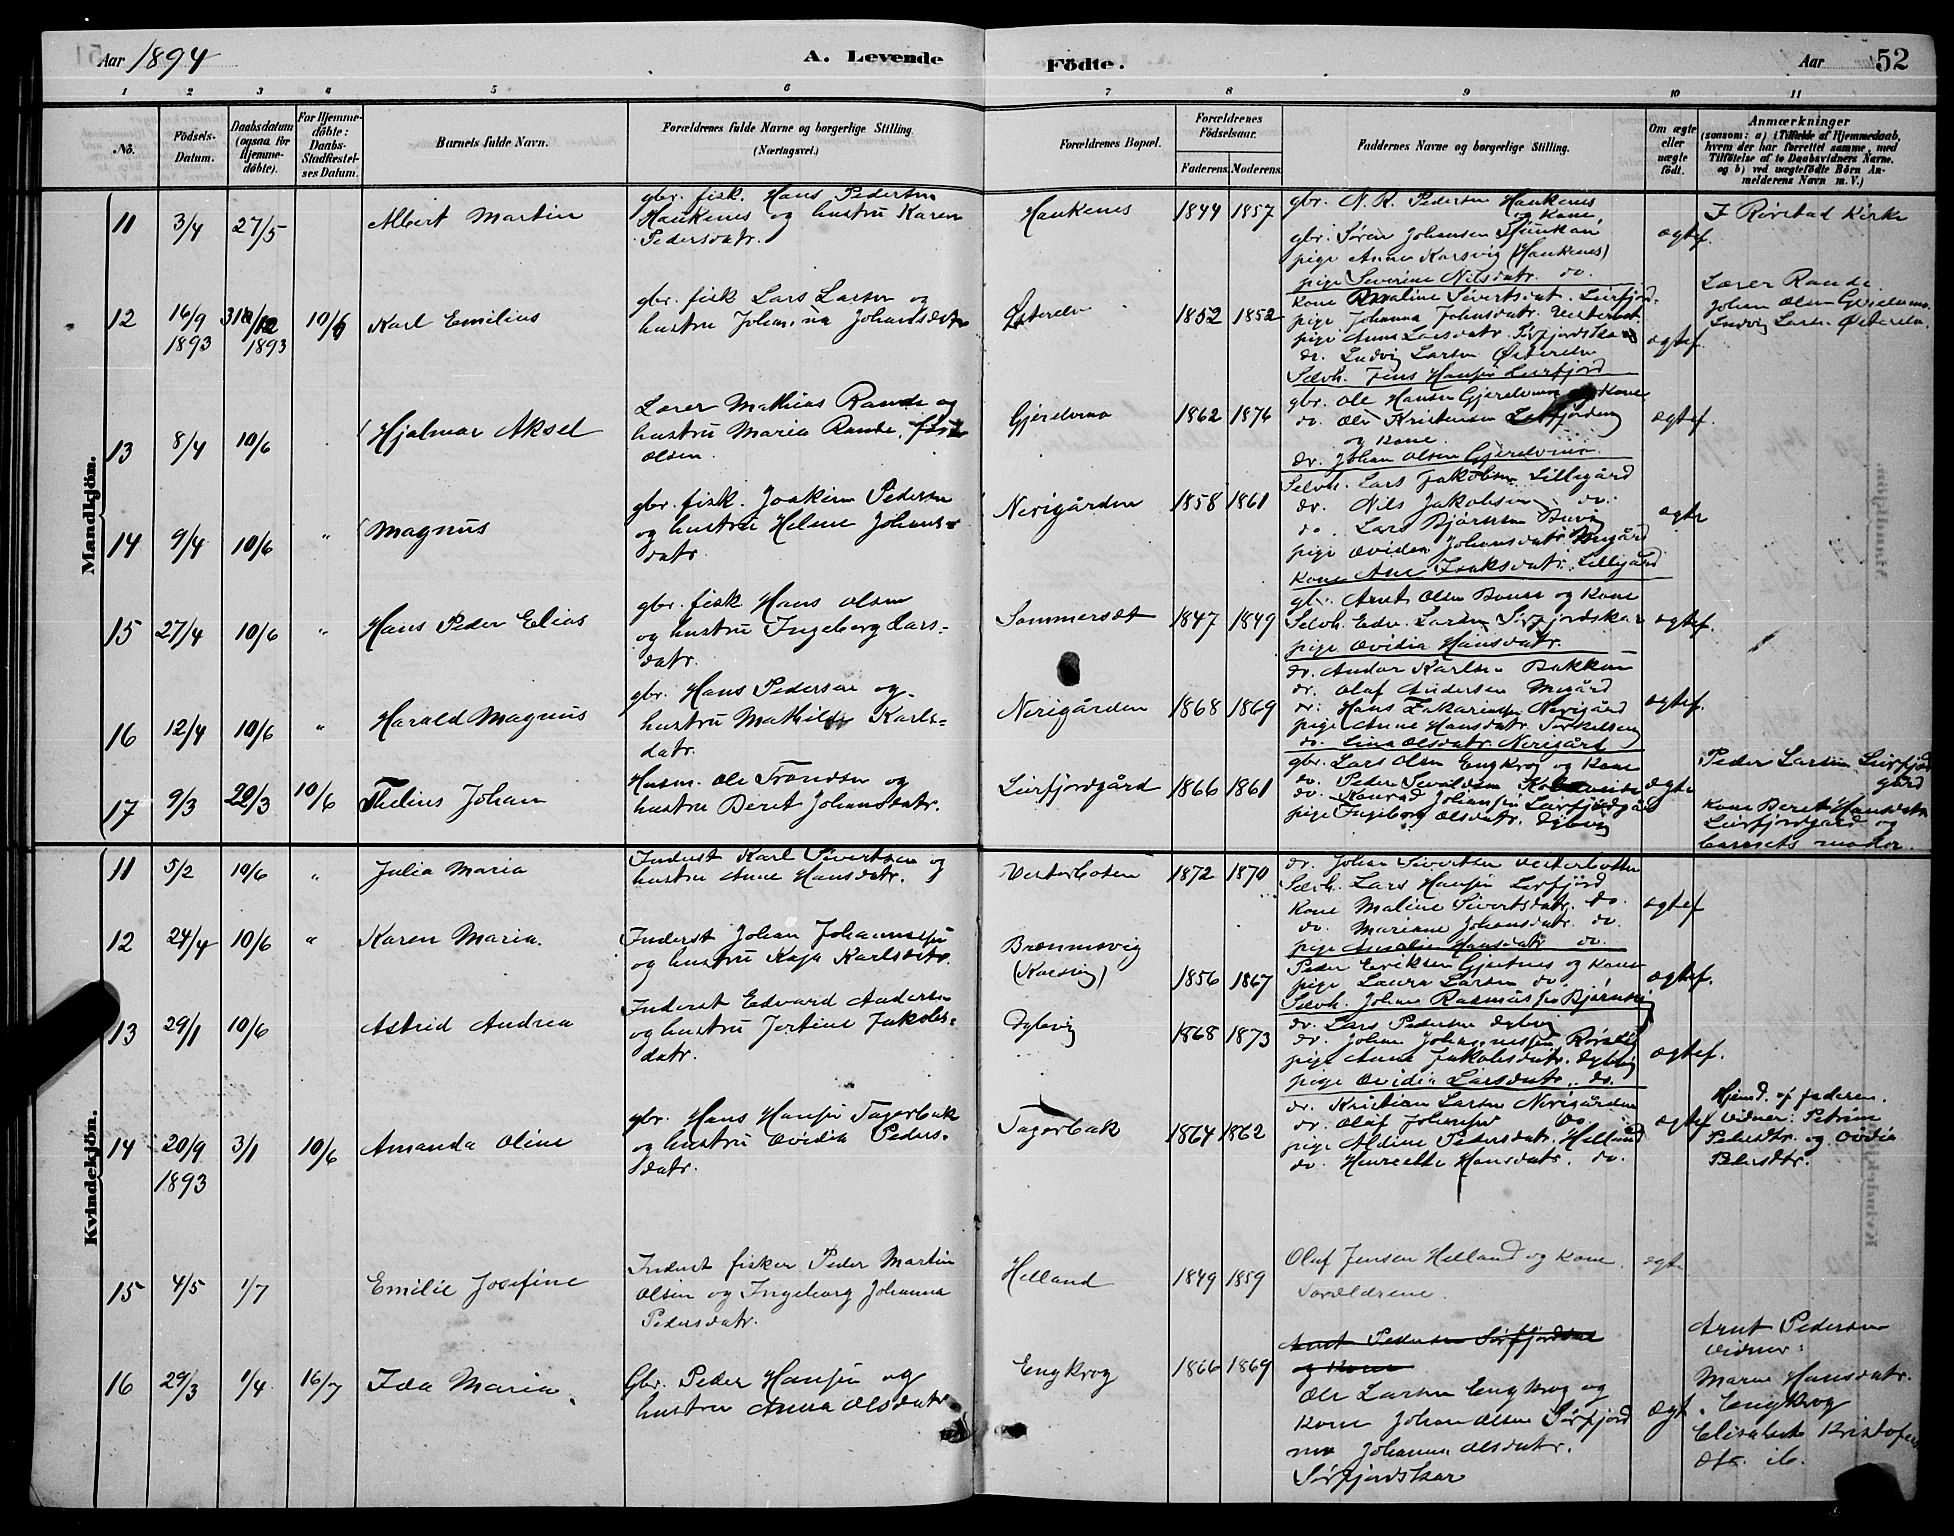 Aar 1894
A. Levende
Födte.
Aar
52
1 2 3 4 5 6 7 8 9 10 11
No.
Födsels-
Datum.
Daabsdatum
(ogsaa for
Hjemme-
döbte).
For Hjemme-
döbte:
Daabs-
Stadfæstel-
ses Datum.
Barnets fulde Navn.
Forældrenes fulde Navne og borgerlige Stilling.
(Næringsvei.)
Forældrenes Bopæl.
Forældrenes
Födselsaar.
Faderens. Moderens.
Faddernes Navne og borgerlige Stilling.
Om ægte
eller
uægte
födt.
Anmærkninger
(saasom: a) i Tilfælde af Hjemmedaab,
hvem der har forrettet samme, med
Tilföielse af to Daabsvidners Navne.
og b) ved uægtefödte Börn An-
melderens Navn m. V.)
Mandkjön.
11 3/4 27/5 Albert Martin
gbr. fisk. Hans Pedersen
Haukenes og hustru Karen
Pedersdatr.
Haukenes 1844 1857
gbr. N. R. Pedersen Haukenes
og kone,
gbr. Søren Johansen
pige Anne Korsvig (Haukenes)
pige Severine Nilsdatr. do.
ægtef.
I Rørstad Kirke
12 16/9 1893 1893 10/6 Karl Emilius
gbr. fisk Lars Larsen og
hustru Johanna Johansdatr
Østerelv 1852 1852
kone Maline Sivertsdat. Leirfjord.
pige Johanna Johnsdatr.
pige Anne Larsdatr. Sørfjordskar
do. Ludvig Larsen Østerelv
Selvh. Jens Hansen Leirfjord
ægtef.
Lærer Rande.
Johan Olsen Gjerelvmo.
Ludvig Larsen Østerelv.
13 8/4 10/6 Hjalmar Aksel
Lærer Mathias Rande og
hustru Maria Rande, født
Olsen.
Gjerelvmo 1862 1876
gbr. Ole Hansen Gjerelvmo og kone
do. Ole Kristensen Leirfjorden
og kone.
do. Johan Olsen Gjerelvmo.
ægtef.
14 9/4 10/6 " Magnus
gbr. fisk. Joakim Pedersen
og hustru Helene Johans-
datr.
Nerigården 1858 1861
Selvh. Lars Jakobsen Lillegård
do. Nils Jakobsen do.
do. Lars Bjørnsen
pige Ovidia Johansdatr.
kone Ane Isaksdatr. Lillegård
ægte
15 27/4 10/6 " Hans Peder Elias
gbr. fisk Hans Olsen
og hustru Ingeborg Lars-
datr.
Sommersæt 1847 1849
gb. Arnt Olsen Bonæs og kone
Selvh. Edv. Larsen Sørfjordskar
pige Ovidia Hansdatr.
ægtef.
16 12/4 10/6 " Harald Magnus
gbr. Hans Pedersen og
hustru Mathilde Karls-
datr.
Nerigården 1868 1869
do. Andor Karlsen Bakken
do. Olaf Andersen
do. Hans Zakariasen Nerigård
pige Anne Hansdatr. Torkelsen
do. Lina Olsdatr. Nerigård
ægtef.
17 9/3 22/3 10/6 Thelius Johan
Husm. Ole Trondsen og
hustru Beret Johansdatr.
Leirfjordgård 1866 1861
gbr. Lars Olsen Engkrog og kone
do. Peder
do. Konrad Johansen Leirfjordgård
pige Ingeborg Olsdatr. Dybvig
ægte
Peder Larsen Leirfjord
gård
kone Beret Hansdatr
Leirfjordgård og
barnets moder.
Kvindekjön.
11 5/2 10/6 " Julia Maria
Inderst Karl Sivertsen og
hustru Anne Hansdatr.
Vesterboten 1872 1870
do. Johan Sivertsen Vesterbotten
Selvh. Lars Hansen Leirfjord
kone Maline Sivertsdatr. do.
do. Mariane Johansdatr. do.
pige Amalie Hansdatr do.
ægtef
12 24/4 10/6 " Karen Maria.
Inderst Johan Johannesen
og hustru Kaja Karlsdatr.
Brænnesvig
1856 1867
Peder Eriksen Gjetnes og kone
pige Laura Larsen do.
Selvh. Johan Rasmussen
ægtef.
13 29/1 10/6 Astrid Andrea
Inderst Edvard Andersen
og hustru Jertine Jakobs-
datr.
Dybvig 1868 1873
do. Lars Pedersen Dybvig
do. Johan Johannessen
pige Anna Jakobsdatr. Dybvig
pige Ovidia Larsdatr. do.
ægtef.
14 20/9 1893 3/1 10/6 Amanda Oline
gbr. Hans Hansen Fagerbak
og hustru Ovidia Peders-
datr.
Fagerbak 1864 1862
do. Kristian Larsen Nerigården
do. Olaf Johansen Do
pige Aldine Pedersdatr. Helland
do. Henrette Hansdatr. do.
ægtef
Hjemd. af faderen.
Vidner: Petrine
Pedersdtr. og Ovidia
Pedersdtr.
15 4/5 1/7 Emilie Josefine
Inderst fisker Peder Martin
Olsen og Ingeborg Johanna
Pedersdatr.
Helland 1849 1859
Olaf Jensen Helland og kone.
Forældrene.
ægte
16 29/3 1/4 16/7 Ida Maria.
Gbr. Peder Hansen og
hustru Anna Olsdatr
Engkrog 1866 1869
Arnt Pedersen Sørfjordskar
og kone
Ole Larsen Engkrog og
kone Johan Olsen Sørfjord
mo Johanna Olsdatr.
Sørfjordskar
ægt.
Arnt Pedersen
Vidner:
Maren Hansdatr.
Engkrog
Elisabet Kristofers
dtr. ib.